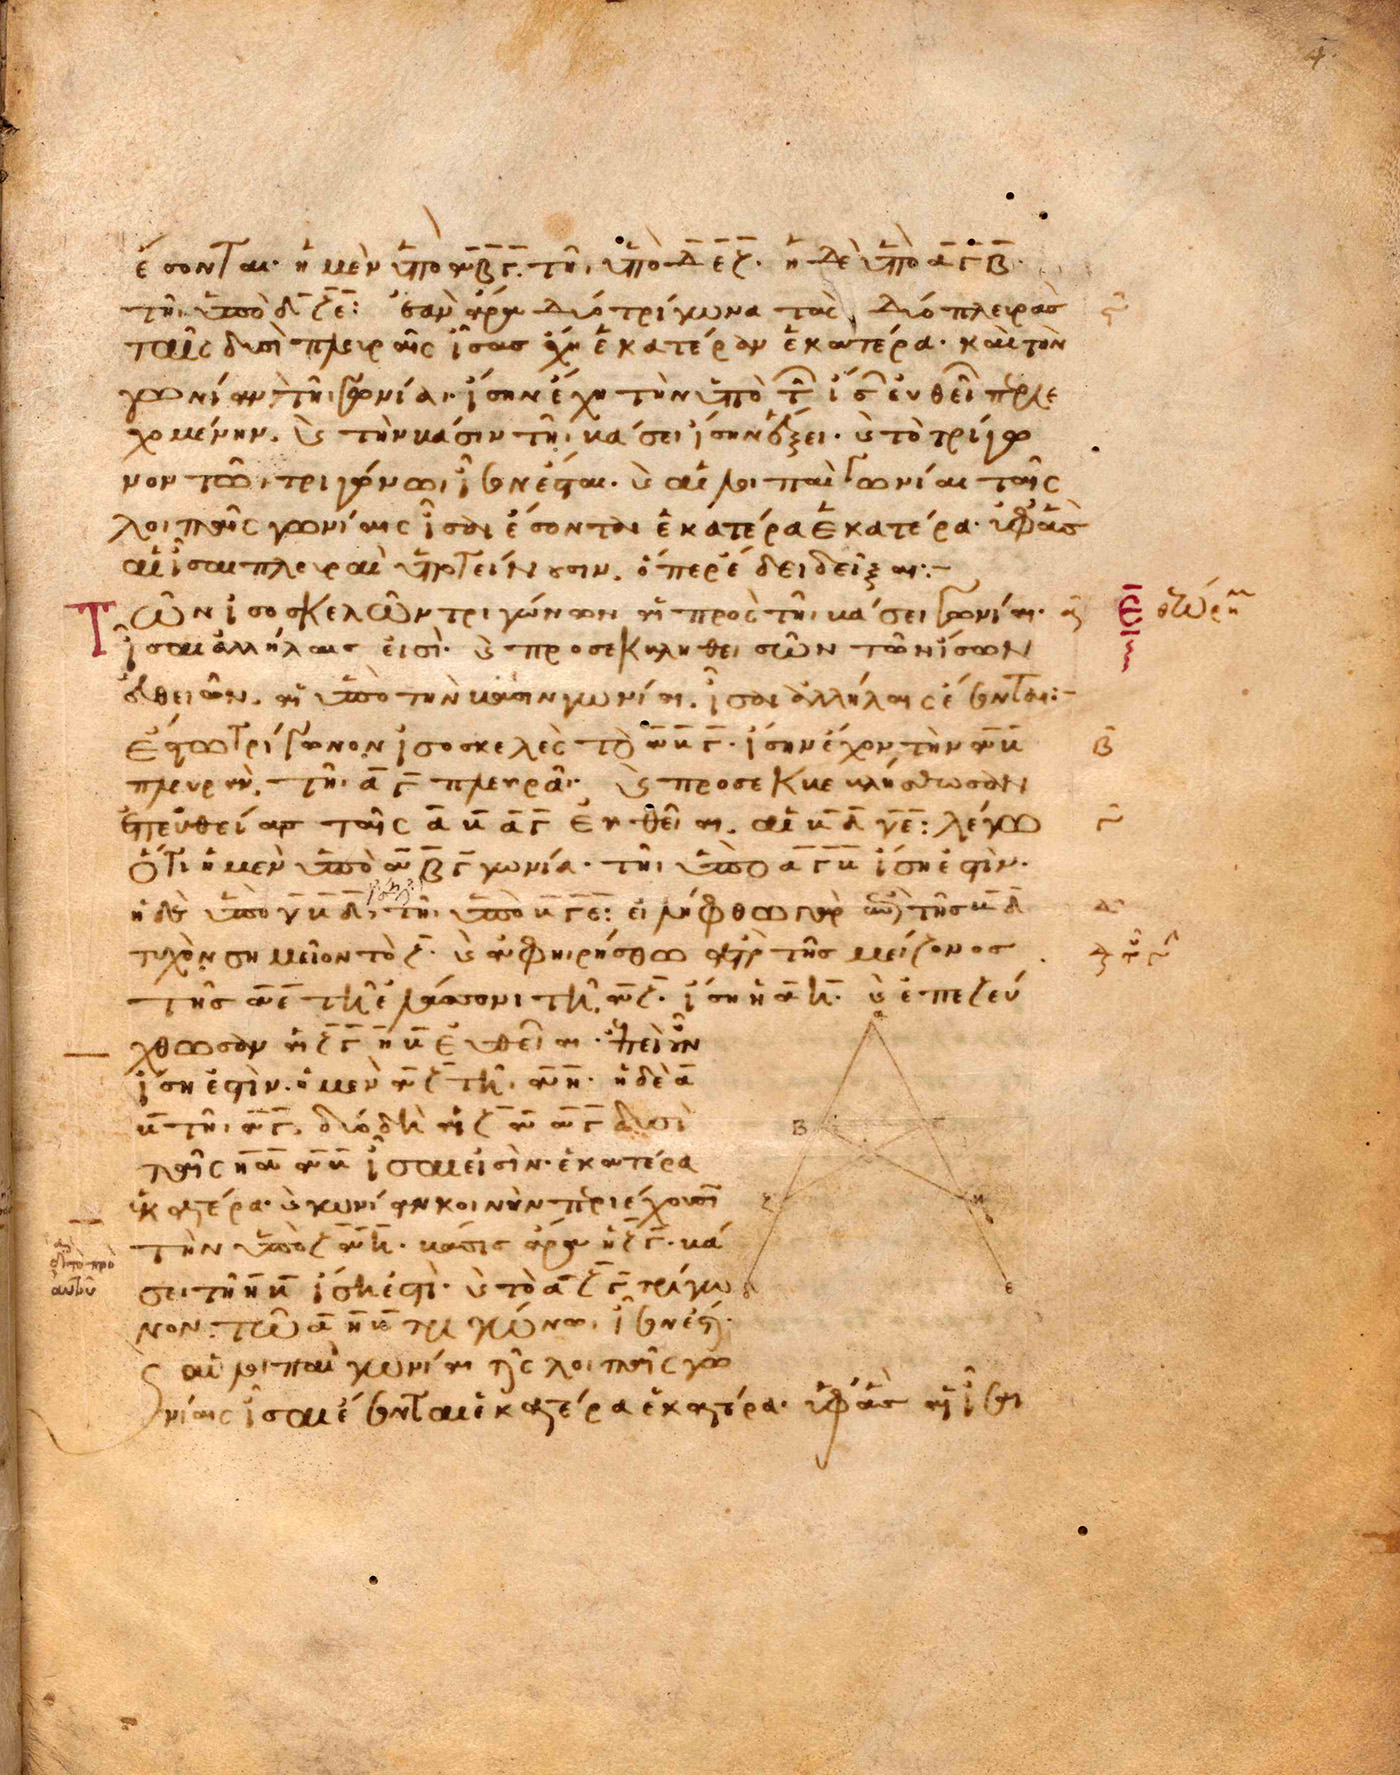 4
ἔσονται· ἡ μὲν ὑπὸ ΑΒΓ τῆι ὑπὸ ΔΕΖ· ἡ δὲ ὑπὸ ΑΓΒ
τῆι ὑπὸ ΔΖΕ: ἐὰν ἄρα δύο τρίγωνα τὰς δύο πλευρὰς
ταῖς δυσὶ πλευραῖς ἴσας ἔχη ἑκατέραν ἑκατέρα· καὶ τὴν
γωνίαν τῆι γωνίαι ἴσην ἔχη τὴν ὑπὸ τῶν ἴσων εὐθειῶν περιε
χομένην· καὶ τὴν βάσιν τῆι βάσει ἴσην ἕξει· καὶ τὸ τρίγω
νον τῶι τριγώνωι ἴσον ἔσται· καὶ αἱ λοιπαὶ γωνίαι ταῖς
λοιπαῖς γωνίαις ἴσαι ἔσονται ἑκατέρα ἑκατέρα· ὑφ᾽ ἃς
αἱ ἴσαι πλευραὶ ὑποτείνουσιν· ὅπερ ἔδει δεῖξαι:–
Τῶν ἰσοσκελῶν τριγώνων αἱ πρὸς τῆι βάσει γωνίαι
Ε
ἴσαι ἀλλήλαις εἰσὶ· καὶ προσεκβληθεισῶν τῶν ἴσων
εὐθειῶν· αἱ ὑπὸ τὴν βάσιν γωνίαι ἴσαι ἀλλήλαις ἔσονται:–
Ἔστω τρίγωνον ἰσοσκελὲς τὸ ΑΒΓ· ἴσην ἔχον τὴν ΑΒ
Β
πλευρὰν τῆι ΑΓ πλευρᾶι· καὶ προσεκβεβλήσθωσαν
ἐπευθείας ταῖς ΑΒ ΑΓ εὐθεῖαι αἱ ΒΔ ΓΕ: λέγω
Γ
ὅτι ἡ μὲν ὑπὸ ΑΒΓ γωνία τῆι ὑπὸ ΑΓΒ ἴση ἐστὶν·
ἡ δὲ ὑπὸ ΓΒΔ τῆι ὑπὸ ΒΓΕ: εἰλήφθω γὰρ ἀπὸ τῆς ΒΔ
Δ
τυχὸν σημεῖον τὸ Ζ· καὶ ἀφηιρήσθω ἀπὸ τῆς μείζονος
τῆς ΑΕ τῆι ἐλάσσονι τῆι ΑΖ ἴση ἡ ΑΗ· καὶ ἐπεζεύ
χθωσαν αἱ ΖΓ ΗΒ εὐθεῖαι· ἐπεὶ οὖν
ἴση ἐστὶν ἡ μὲν ΑΖ τῆι ΑΗ· ἡ δὲ Α
Β τῆι ΑΓ· δύο δὴ αἱ ΖΑ ΑΓ δυσὶ
ταῖς ΗΑ ΑΒ ἴσαι εἰσὶν· ἑκατέρα
ἑκατέρα· καὶ γωνίαν κοινὴν περιέχουσι
τὴν ὑπὸ ΖΑΗ· βάσις ἄρα ἡ ΖΓ βά
σει τῆι ΗΒ ἴση ἐστὶ· καὶ τὸ ΑΖΓ τρίγω
νον τῶι ΑΗΒ τριγώνωι ἴσον ἐστὶ·
καὶ αἱ λοιπαὶ γωνίαι ταῖς λοιπαῖς γω
νίαις ἴσαι ἔσονται ἑκατέρα ἑκατέρα· ὑφ᾽ ἃς αἱ ἴσαι
Α
Β
Γ
Ζ
Η
Δ
Ε